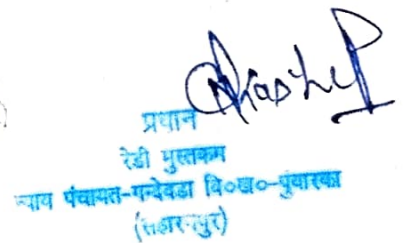 प्रधान
रेडी मुस्तकम
न्याय पंचायत-गन्देवडा वि०ख०-पुंवारका
(सहारनपुर)